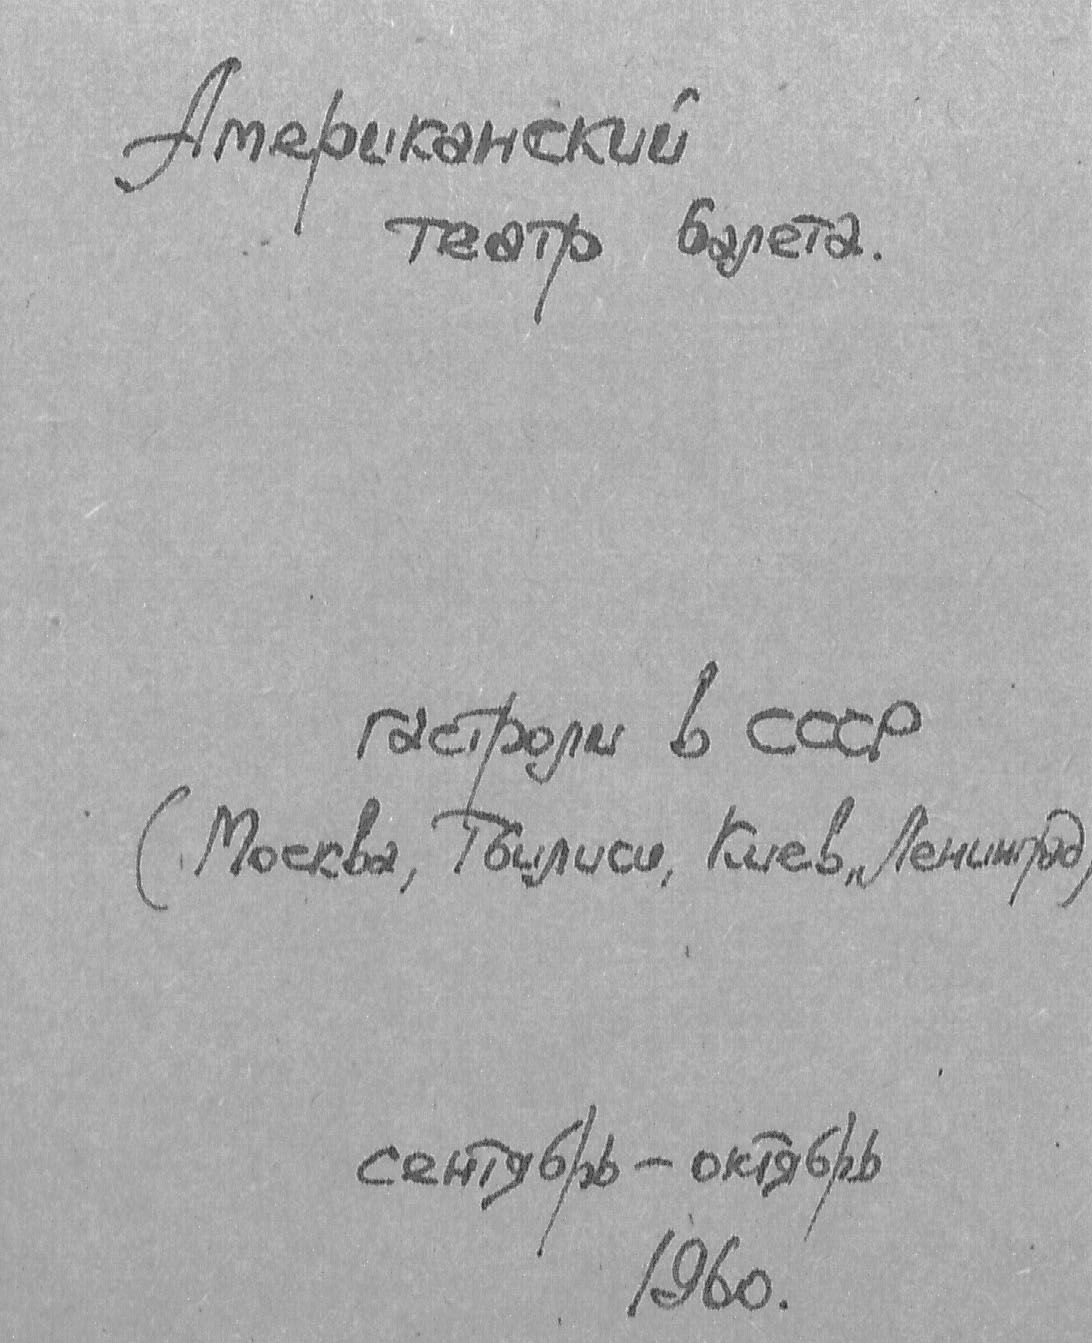 Американский
театр балета.
гастроли в СССР
(Москва, Тбилиси, Киев, Ленинград)
сентябрь – октябрь
1960.